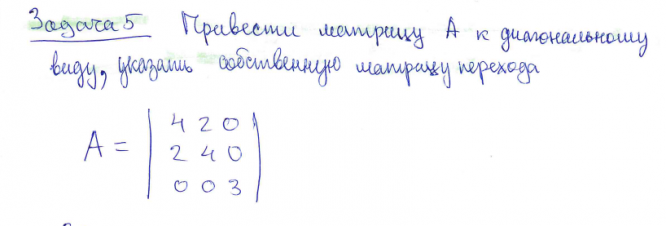 Задача 5 Привести матрицу A к диагональному
виду, указать собственную матрицу перехода
4 2 0
A = 2 4 0
0 0 3